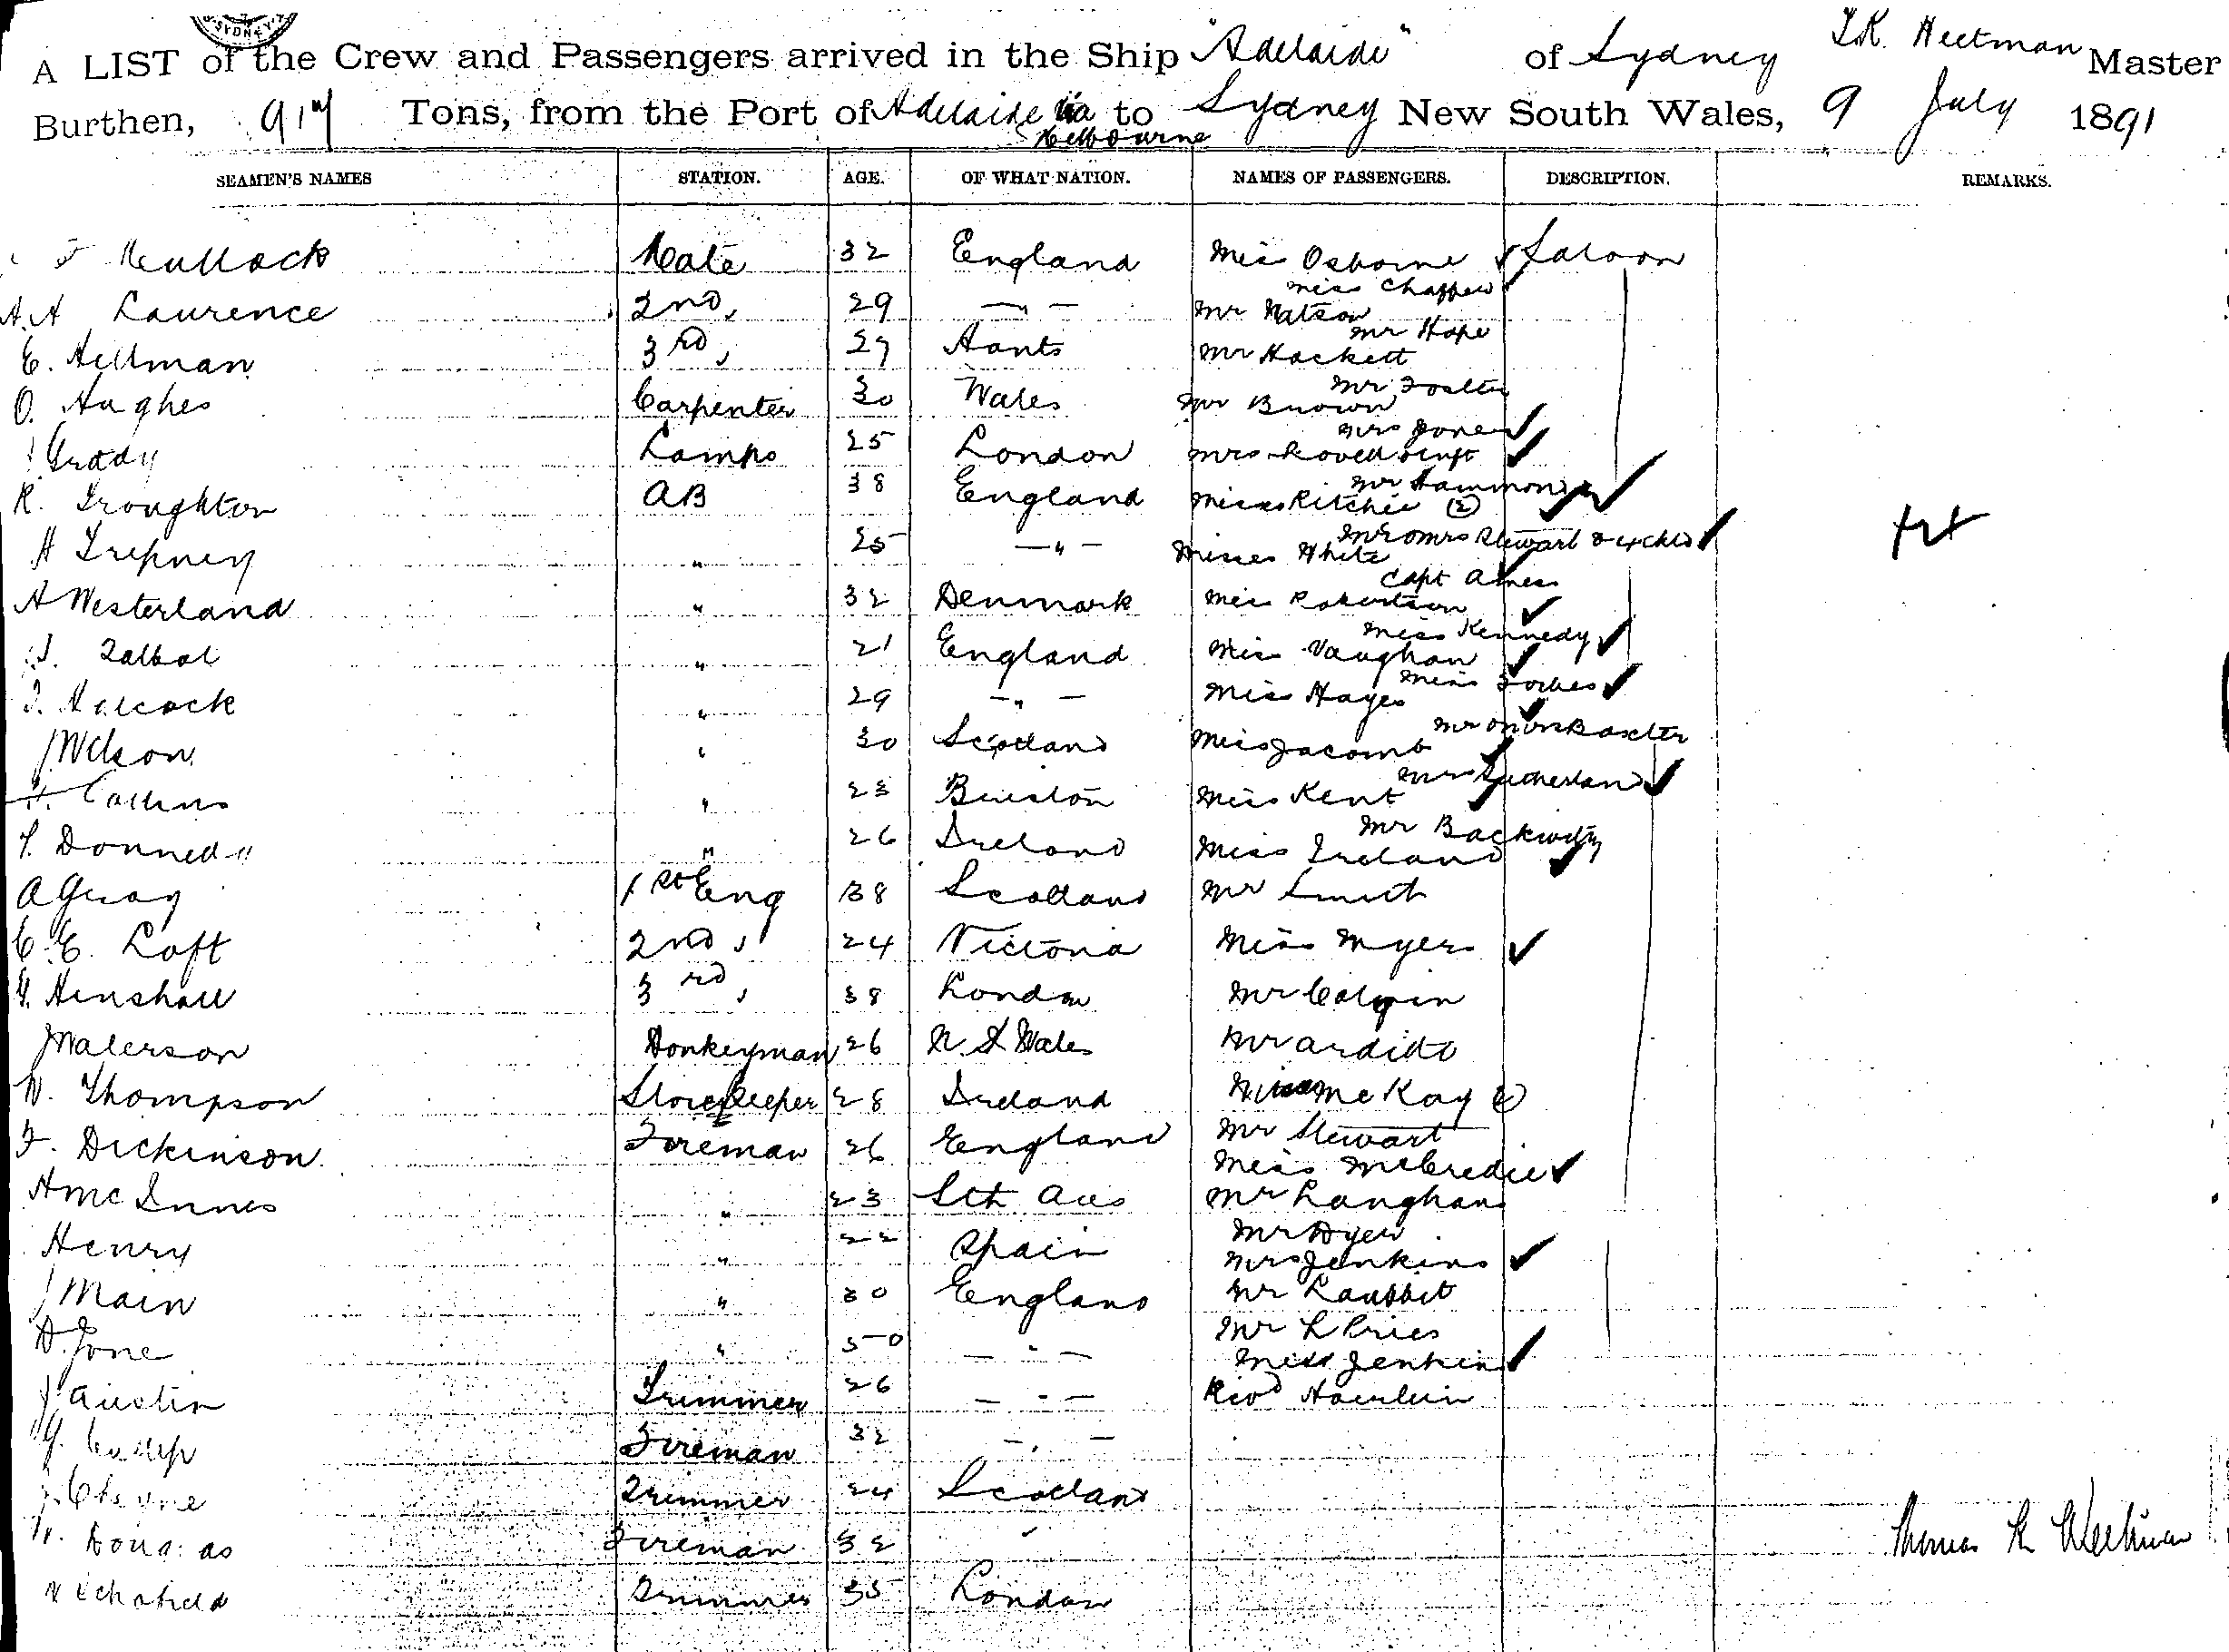 SYDNEY
A LIST of the Crew and Passengers arrived in the Ship "Adelaide" of Sydney T.R. Master
Burthen, 917 Tons, from the Port of Adelaide via Melbourne to Sydney New South Wales, 9 July 1891
SEAMEN'S NAMES STATION. AGE. OF WHAT NATION. NAMES OF PASSENGERS. DESCRIPTION. REMARKS.
Mate 32 England Miss Osborne Saloon
Miss
A.A Laurence 2nd 29 — " — Mr Watson
Mr Hope
E. Hillman 3rd 27 Hants Mr Hackett
Mr
O. Hughes Carpenter 30 Wales Mr Brown
Mrs Jones
Grady Lamps 25 London Mrs
Mr Hammond
R. Troughton AB 38 England Misses Ritchie (2)
Mr & Mrs Stewart & 4 chld
H " 25 — " — Misses White
Capt Ames
A Westerland " 32 Denmark Miss Robertson
Miss Kennedy
J. Talbot " 21 England Miss Vaughan
Miss Forbes
" 29 — " — Miss Hayes
Mr & Mrs Baxter
J Wilson " 30 Scotland Miss Jacomb
Mrs Sutherland
Collins " 23 Miss Kent
Mr
Donnelly " 26 Ireland Miss Ireland
A Gray 1st Eng 38 Scotland Mr Smith
C. E. Loft 2nd " 24 Victoria Miss Myers
Henshall 3rd " 38 London Mr
Donkeyman 26 N. S Wales Mr Ardito
W. Thompson Storekeeper 28 Ireland McKay 2
Mr Stewart
F. Dickinson Fireman 26 England
Miss McCredie
H McInnes " 23 Sth Aus Mr
Mr Dyer
Henry " 22 Spain
Mrs Jenkins
J Main " 30 England Mr
Mr L Pries
" 50 — " —
Miss Jenkins
J Austin Trimmer 26 — " — Revd
Fireman 32 — " —
J. Cheyne Trimmer 24 Scotland
W. Douglas Fireman 32 " Thomas
Schofield Trimmer 35 London